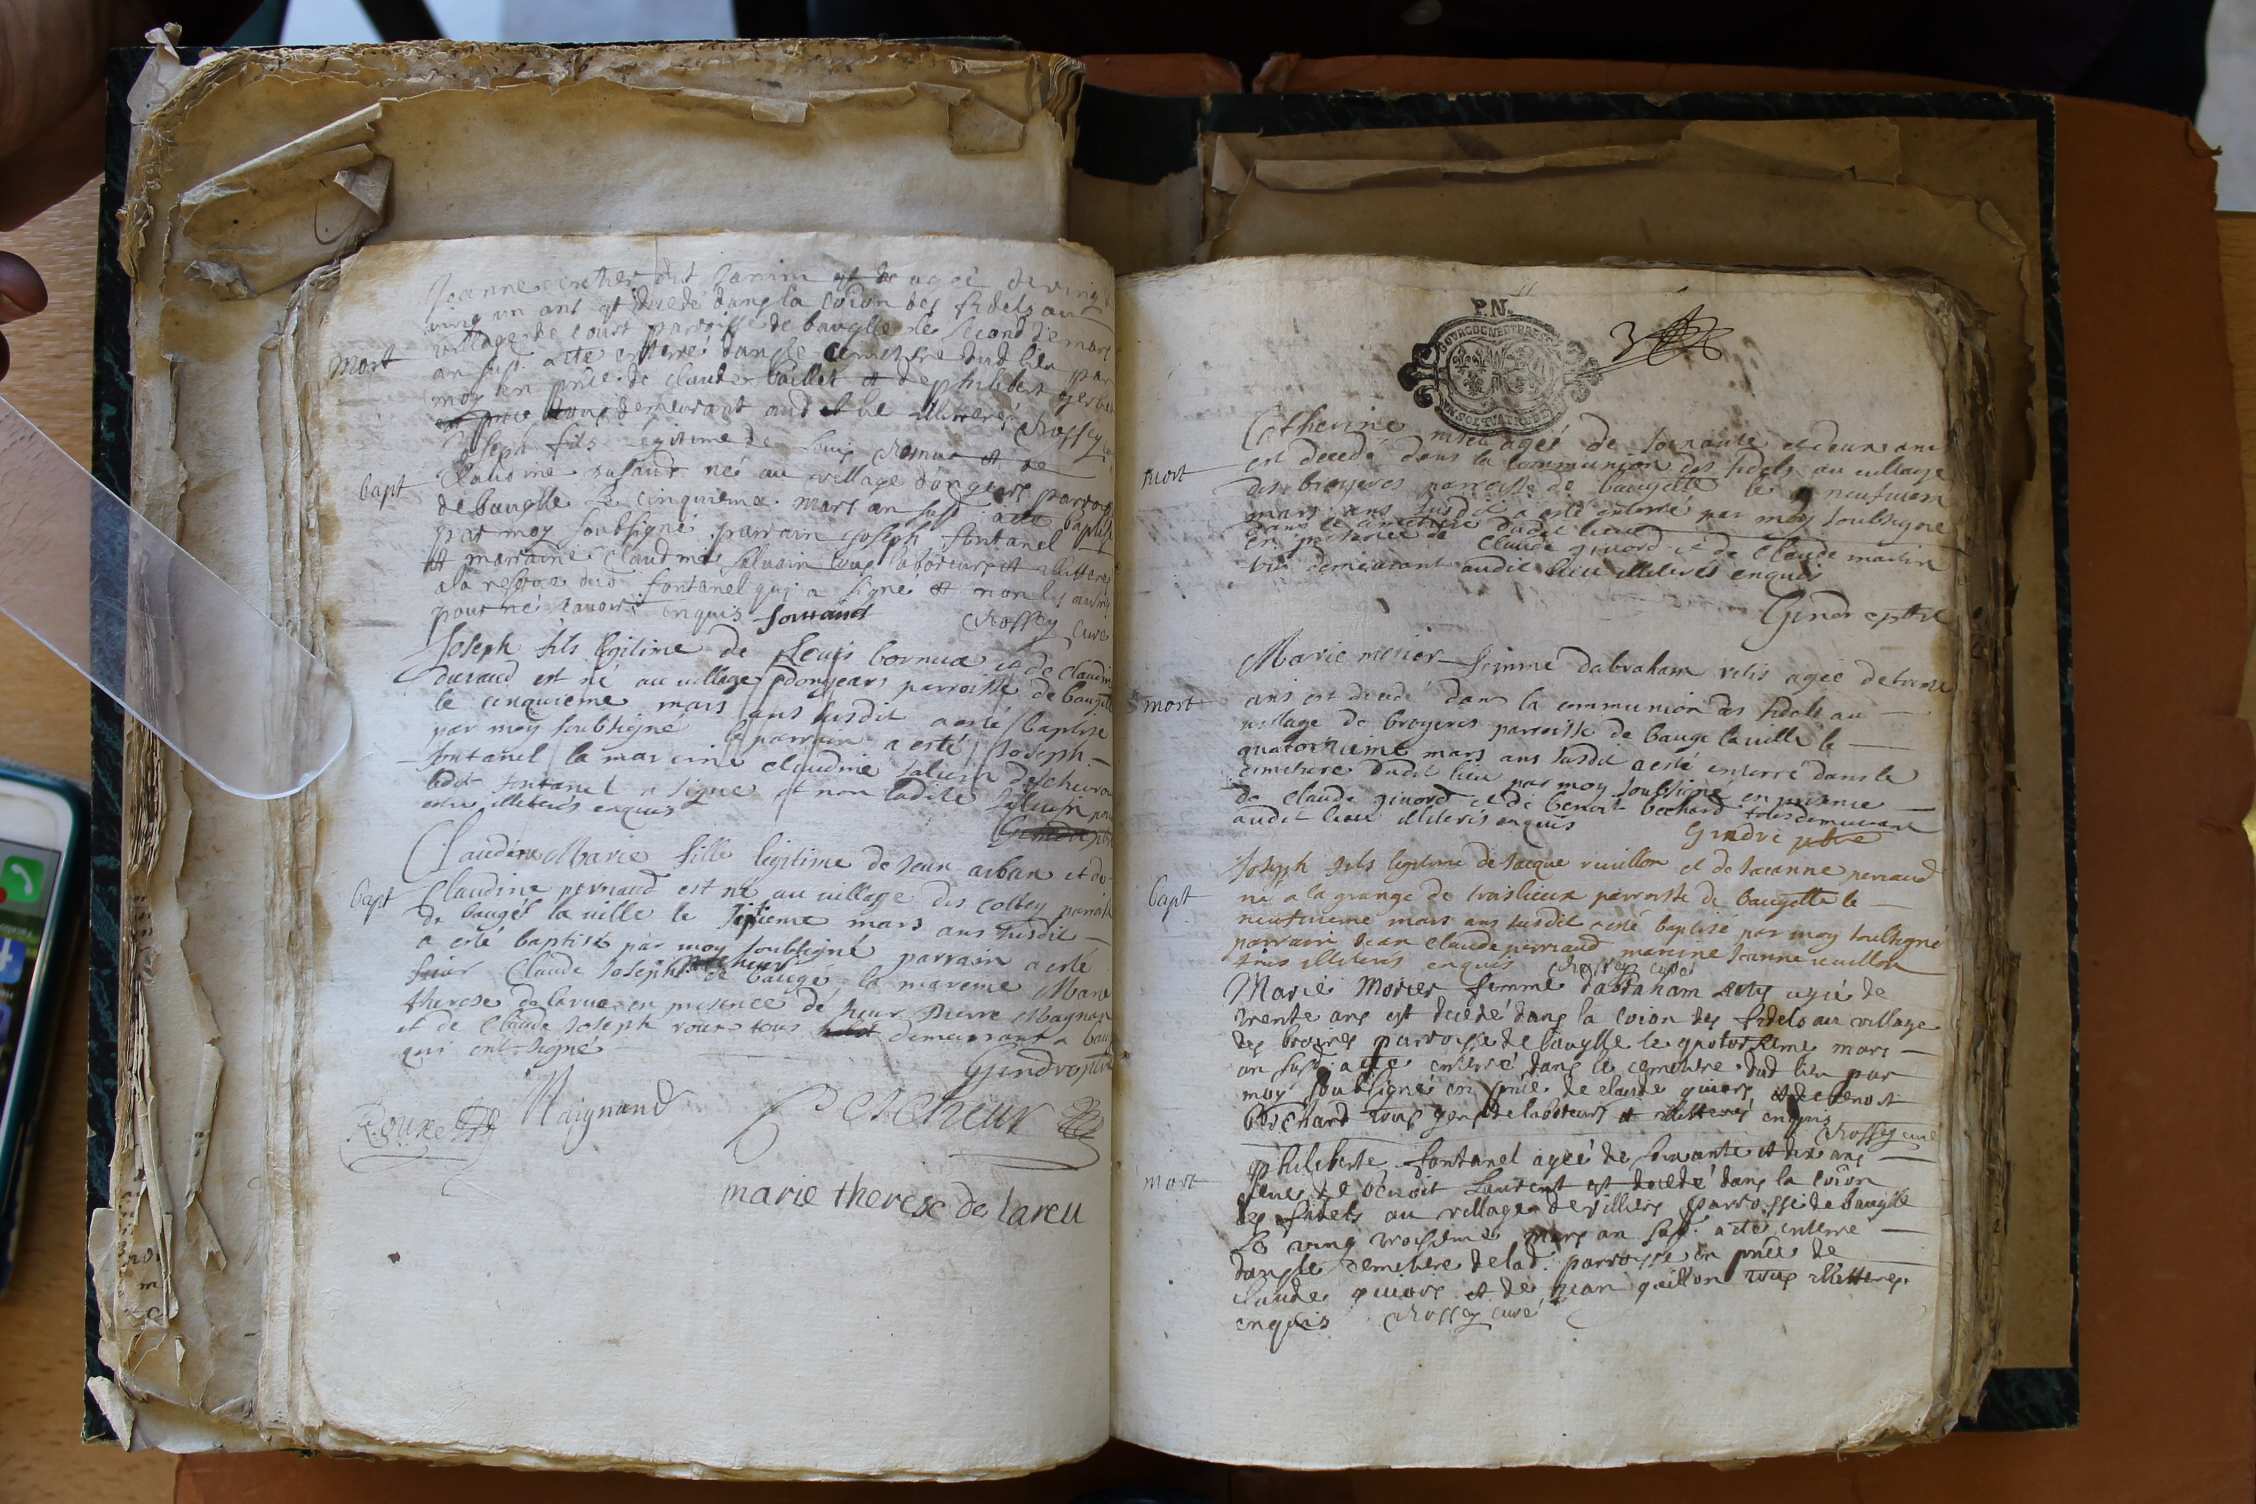 Jeanne dit agé de ving
ving un ans est decedé dans la coïon des fidels au
village de court parroisse de bauglle le second de mars
mort
an susd. a eté enterré dans le cemetire dud lieu par
moy en pnce de claude vaillet et de philibert
tous demeurant aud lieu illitterés Rossey
Joseph fils legitime de Louis et de
Claudine durand né au village d'ongears parroisse
bapt
de bauglle le cinquieme mars an susd. a eté baptisé
par moy soubsigné parrain joseph fontanel
et marraine claudine salvain tous laboteurs et illitterés
a la reserve dud fontanel qui a signé et non les autres
pour ne sçavoir enquis fontanel Rossey curé
Joseph fils legitime de Louis bornua et de claudine
durand est né au village dongears parroisse de baugelle
le cinquieme mars ans susdit a esté baptisé
par moy soubsigné le parrain a esté Joseph
fontanel la mareine claudine saluin
ledit fontanel a signé et non ladite saluin pour
estre illiterés enquis
Gindre pbtre
Claudine Marie fille legitime de Jean arban et de
bapt
Claudine pernaud est né au village des colley parroisse
de baugés la ville le sixieme mars ans susdit
a esté baptisé par moy soubsigné parrain a esté
sieur Claude Joseph de baugé la mareine Marie
therese delarue en presence de sieur Pierre Magnan
et de Claude Joseph roux tous demeurant a baugé
qui ont signé
Gindre pbtre
Roux Maignand
marie therese de lareu
P.N.
BOURGOGNE ET BRESSE
UN SOL QUATRE D
3
Catherine agée de soixante et deux ans
est decedé dans la communion des fidels au village
mort
des broyeres parroisse de baugelle le neufuiem
mars ans susdit a esté enterré par moy soubsigné
dans le cimetiere dudit lieu
en presence de Claude givord et de Claude martin
tous demeurant audit lieu illiterés enquis
Gindre pbtre
Marie morier femme dabraham retis agée de trente
mort
ans est decedé dans la communion des fidels au
village de broyeres parroisse de bauge la ville le
quatorzieme mars ans susdit a esté enterré dans le
cimetiere dudit lieu par moy soubsigné en presence
de Claude givord et de benoit bochard tous demeurant
audit lieu illiterés enquis
Gindre pbtre
Joseph fils legitime de Jacque revillon et de Jeanne perraud
bapt
né a la grange de troislieux parroisse de baugelle le
neufuieme mars ans susdit a esté baptisé par moy soubsigné
parrain Jean Claude perraud mareine Jeanne revillon
tous illiterés enquis Rossey curé
Marie Morier femme dabraham retis agée de
trente ans est decedé dans la coïon des fidels au village
des broires parroisse de baugelle le quatorsieme mars
an susd. a eté enterré dans le cemetire dud lieu par
moy soubsigné en pnce de claude givors et de benoit
Bochard tous gens de laboteurs et illitterés enquis
Rossey curé
mort
philiberte fontanel agée de soixante et dix ans
veuve de Benoit Laurent est decedé dans la coïon
des fidels au village de villiers parroisse de baugelle
le ving troisieme mars an susd. a eté enterré
dans le cemetire de lad. parroisse en pnce de
claude givors et de jean guillon tous illitterés
enquis Rossey curé